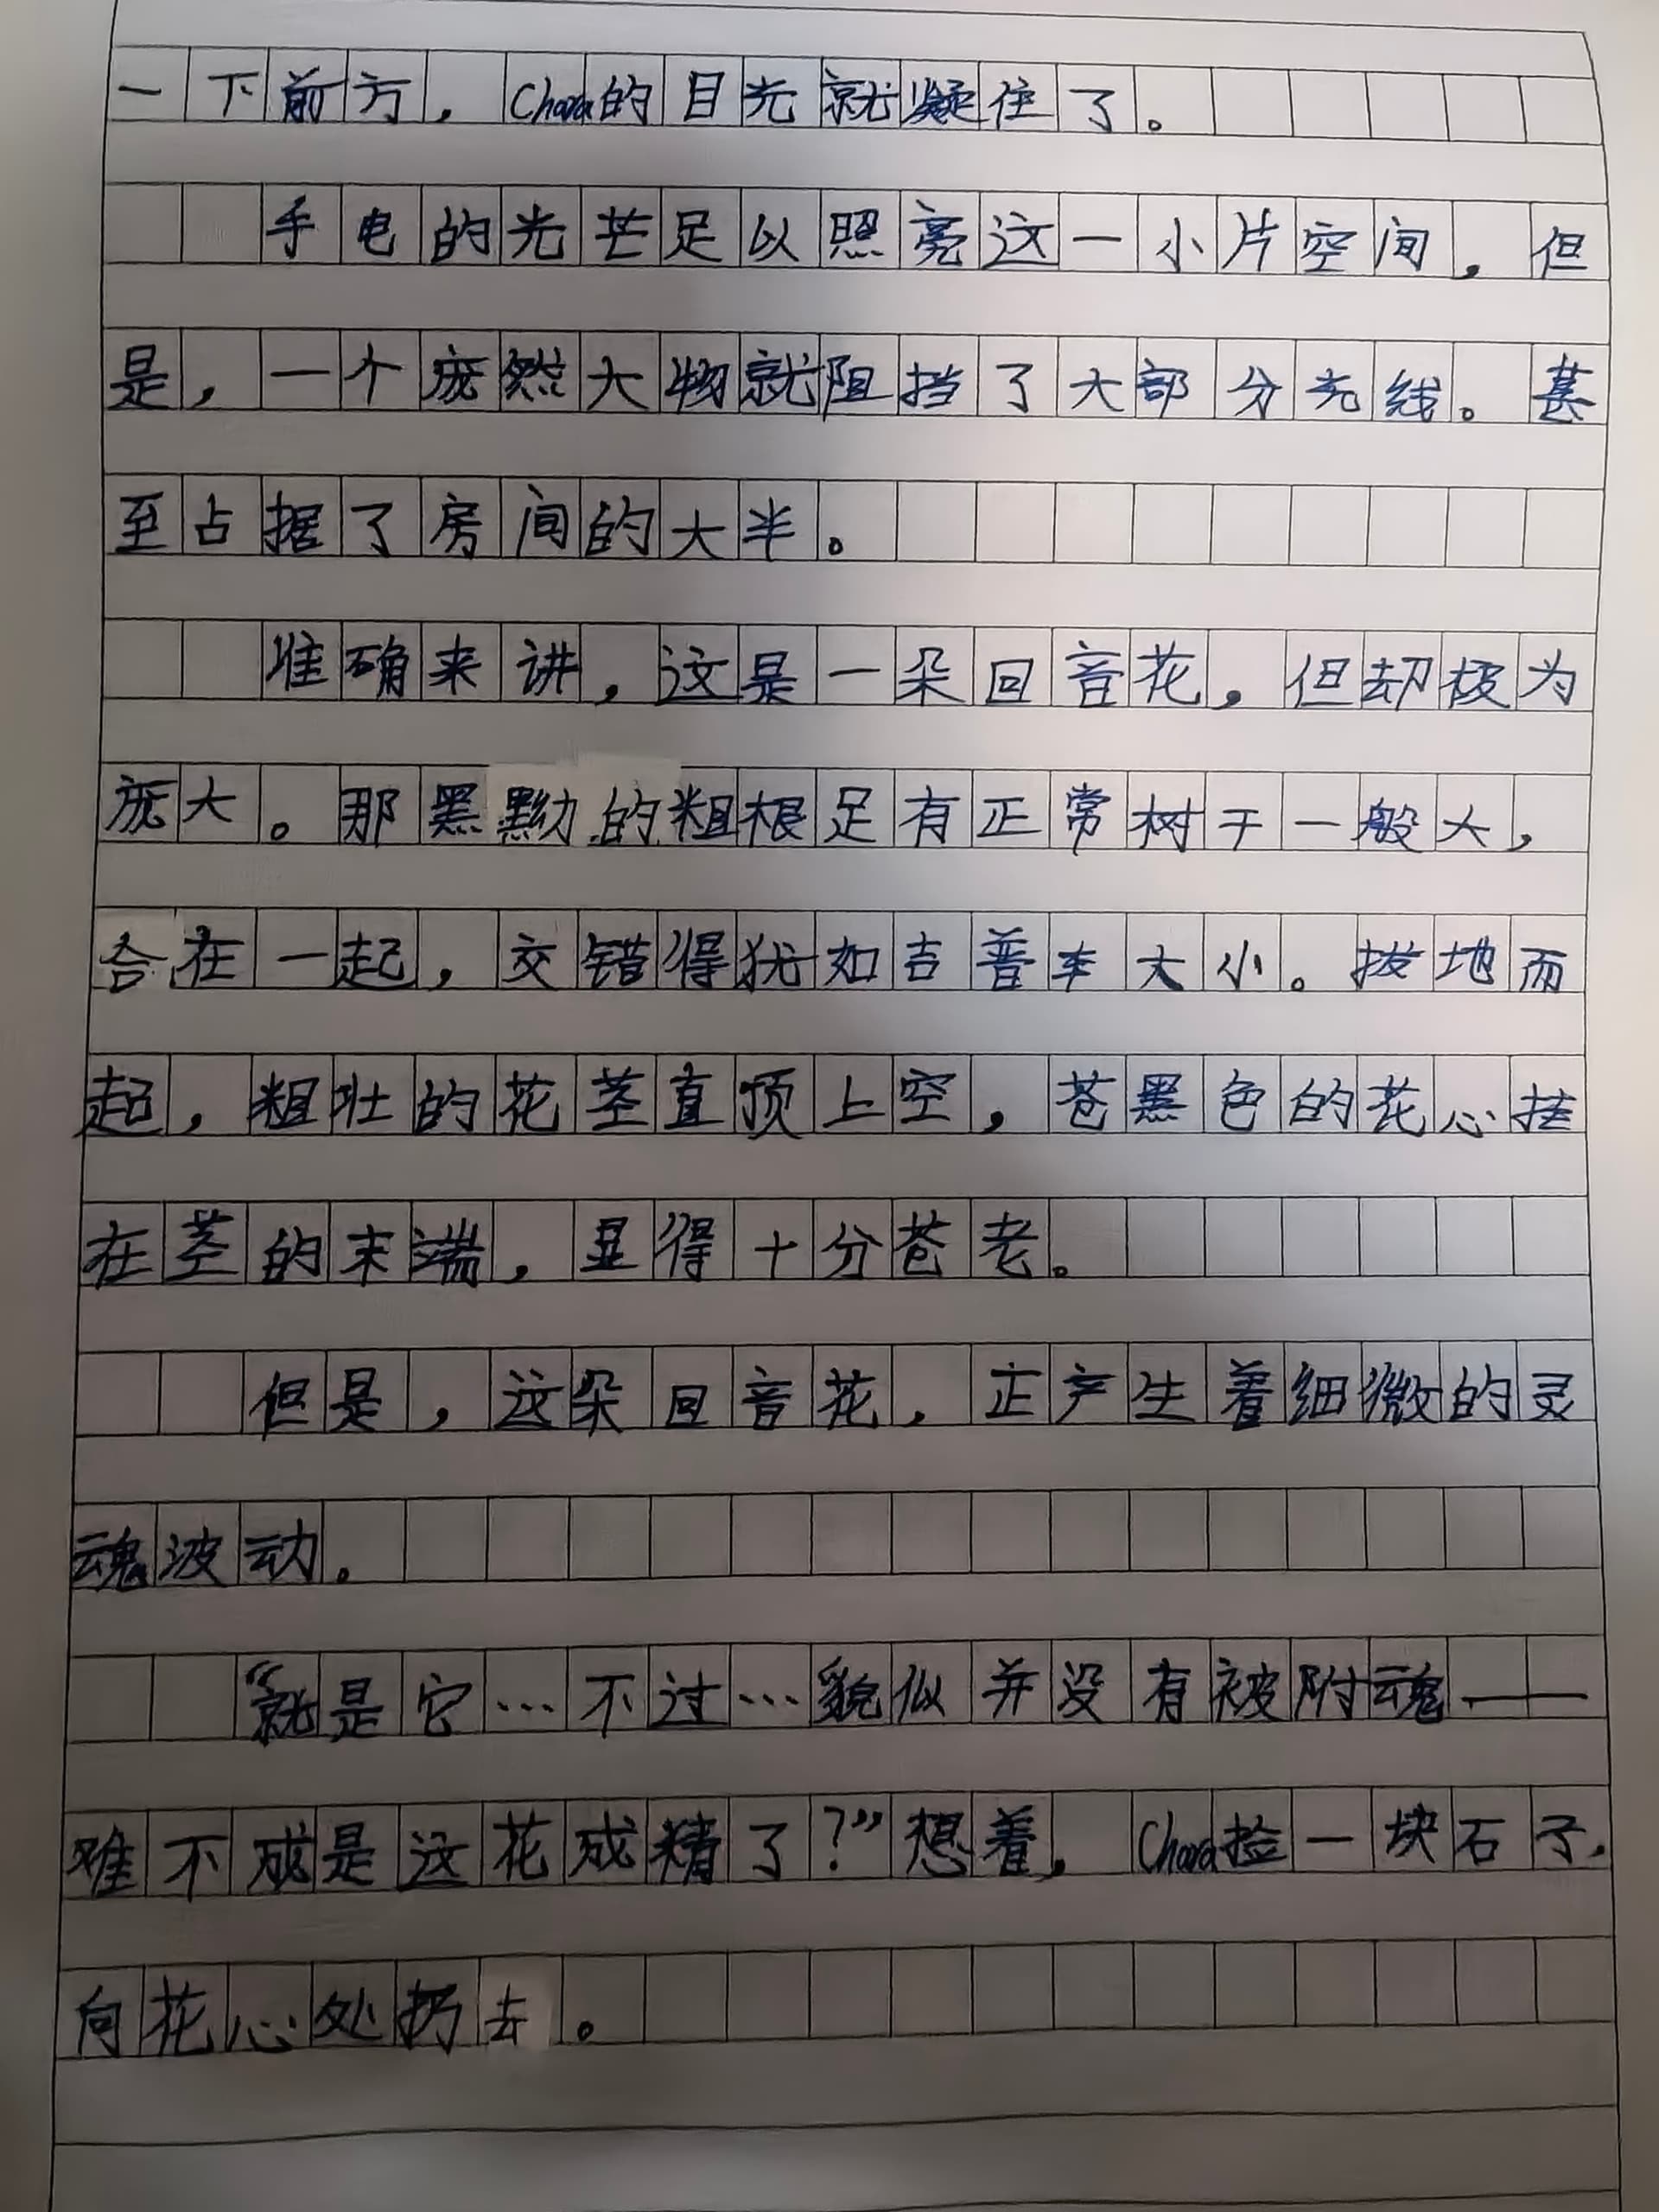 一下前方，Chara的目光就凝住了。
手电的光芒足以照亮这一小片空间，但
是，一个庞然大物就阻挡了大部分光线。甚
至占据了房间的大半。
准确来讲，这是一朵回音花，但却极为
庞大。那黑黝的粗根足有正常树干一般大，
合在一起，交错得犹如吉普车大小。拔地而
起，粗壮的花茎直顶上空，苍黑色的花心挂
在茎的末端，显得十分苍老。
但是，这朵回音花，正产生着细微的灵
魂波动。
“就是它…不过…貌似并没有被附魂——
难不成是这花成精了？”想着，Chara捡一块石子，
向花心处扔去。